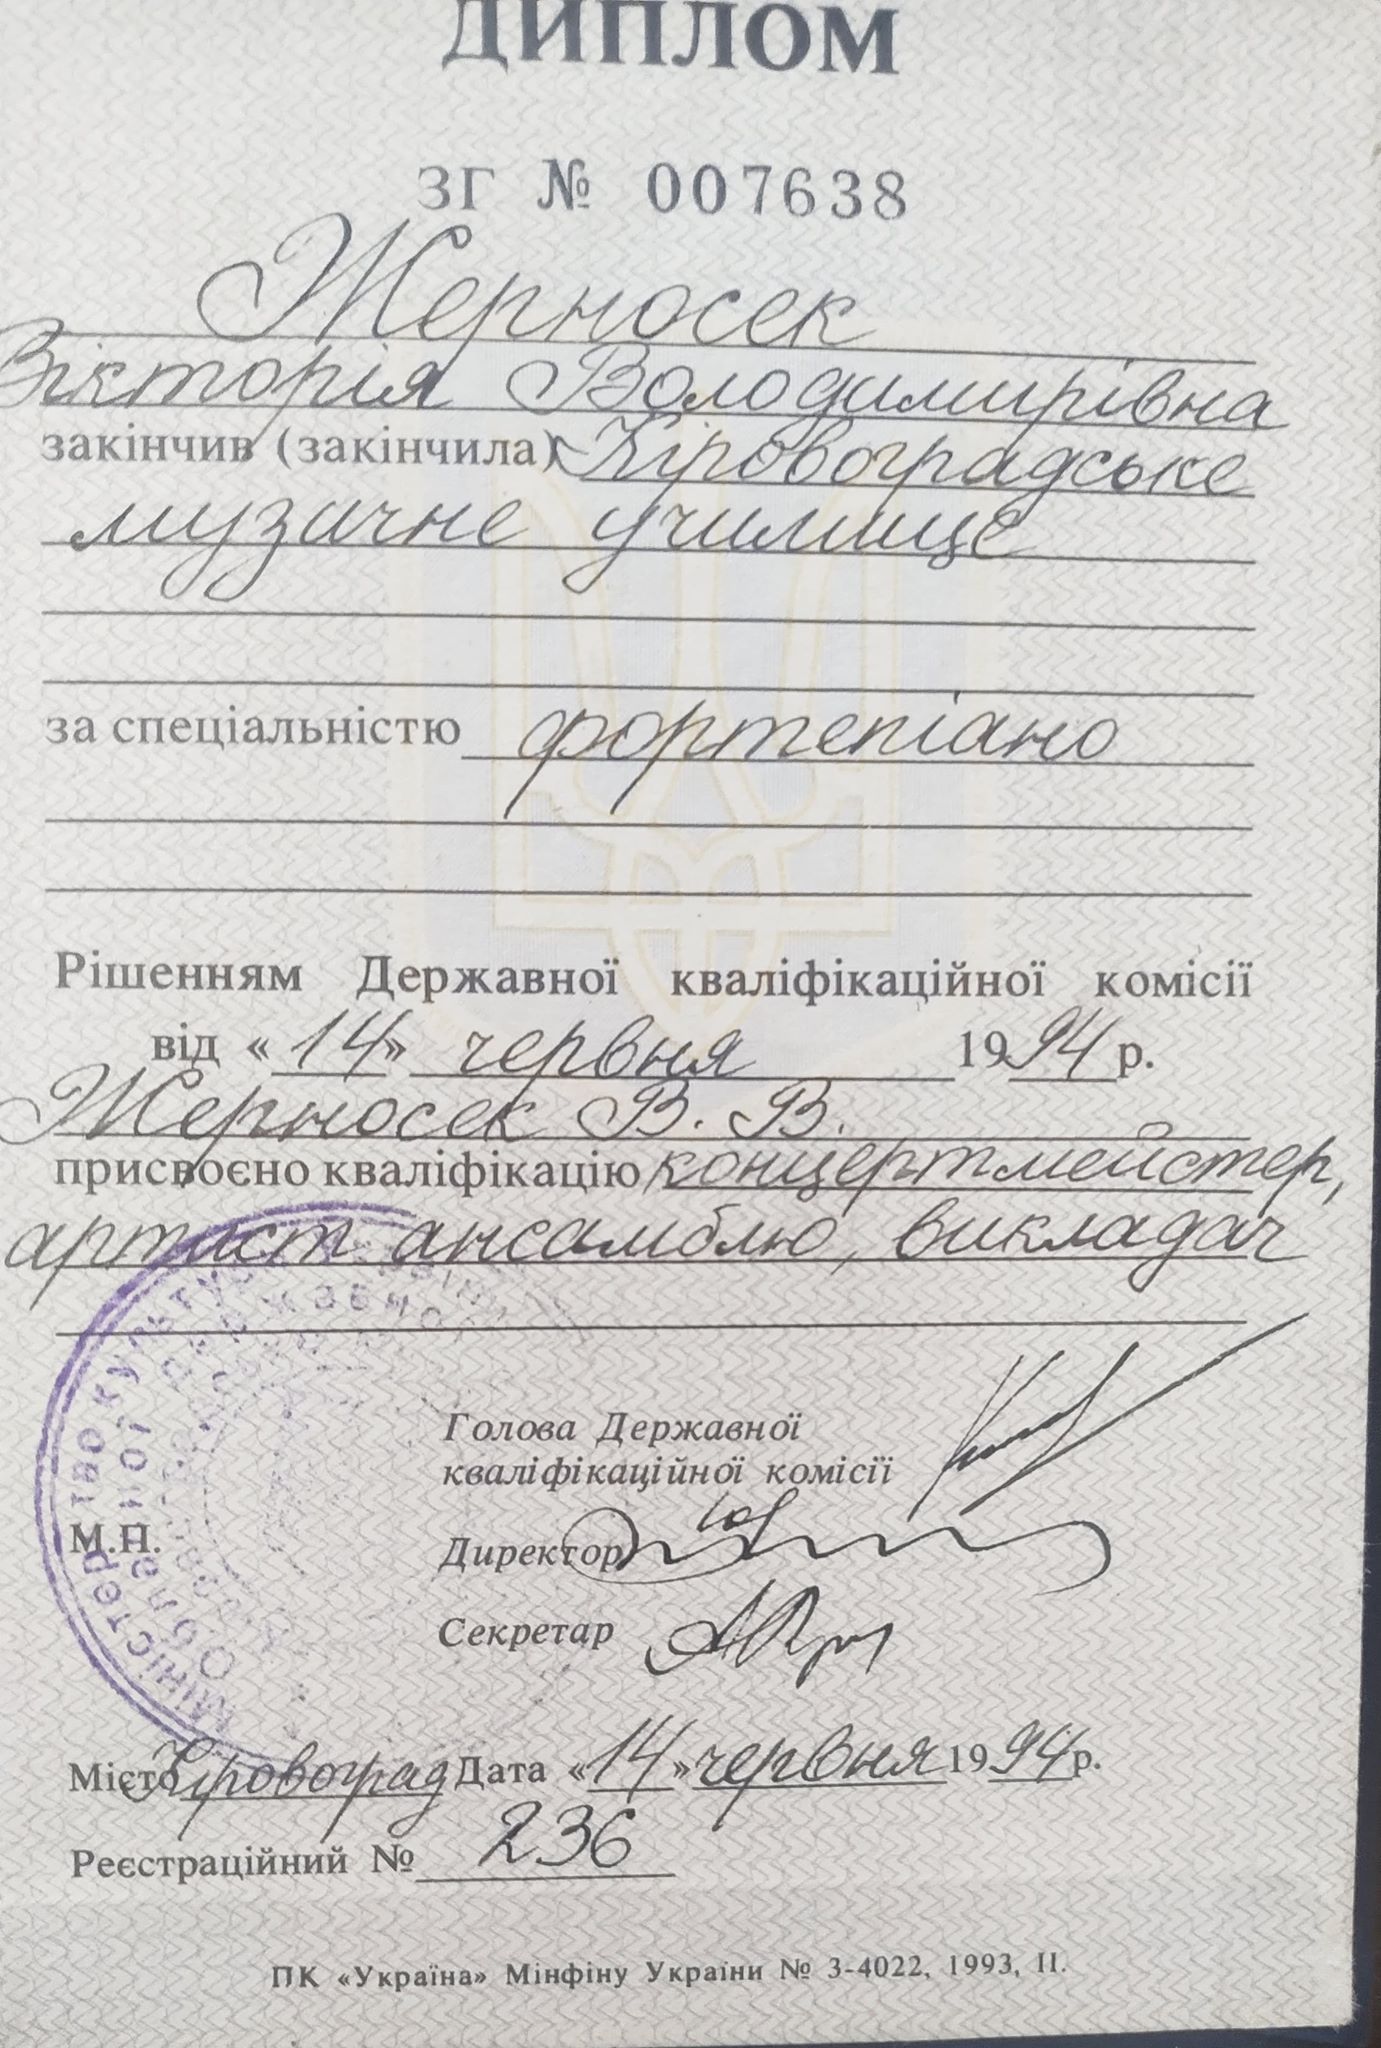 ДИПЛОМ
ЗГ № 007638
Жерносек
Вікторія Володимирівна
закінчив (закінчила) Кіровоградське
музичне училище
за спеціальністю фортепіано
Рішенням Державної кваліфікаційної комісії
від «14» червня 1994 р.
Жерносек В. В.
присвоєно кваліфікацію концертмейстер,
артист ансамблю, викладач
Голова Державної
кваліфікаційної комісії
М.П.
Директор
Секретар
Місто Кіровоград Дата «14» червня 1994 р.
Реєстраційний № 236
ПК «Україна» Мінфіну України № 3-4022, 1993, II.